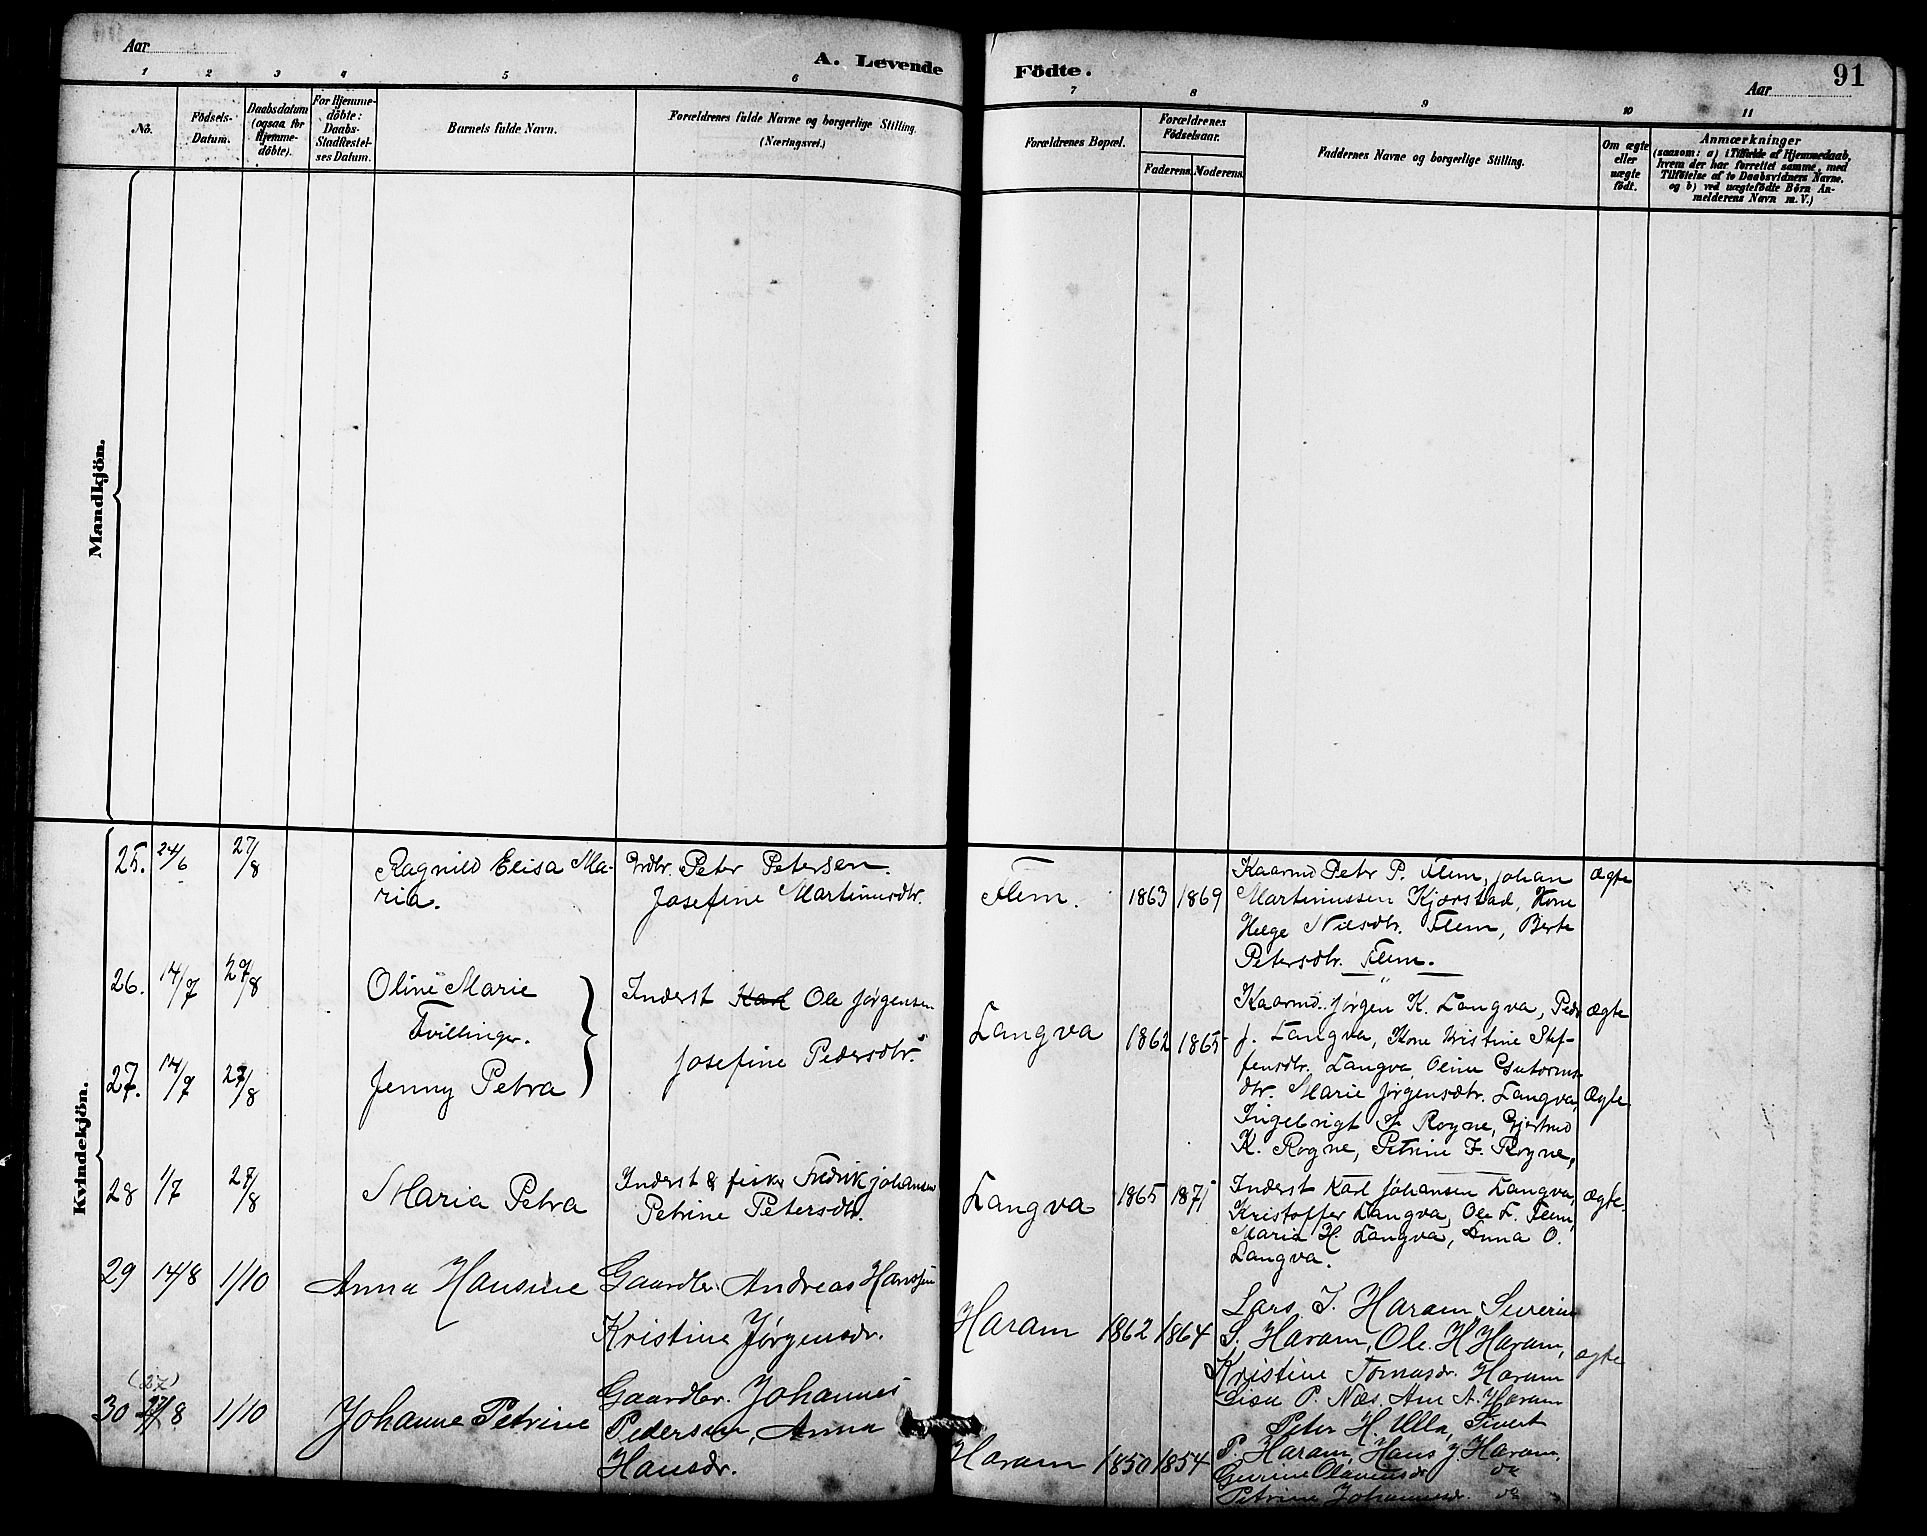 Aar
A. Levende Födte.
Aar
91
1 2 3 4 5 6 7 8 9 10 11
No.
Födsels-
Datum.
Daabsdatum
(ogsaa for
Hjemme-
döbte).
For Hjemme-
döbte:
Daabs-
Stadfæstel-
ses Datum.
Barnets fulde Navn.
Forældrenes fulde Navne og borgerlige Stilling.
(Næringsvei.)
Forældrenes Bopæl.
Forældrenes
Födselsaar.
Faderens. Moderens.
Faddernes Navne og borgerlige Stilling.
Om ægte
eller
uægte
födt.
Anmærkninger
(saasom: a) i Tilfælde af Hjemmedaab,
hvem der har forrettet samme, med
Tilföielse af to Daabsvidners Navne.
og b) ved uægtefödte Börn An-
melderens Navn m. V.)
Mandkjön.
Kvindekjön.
25. 24/6 27/8
Ragnild Elisa Ma-
ria.
Grdbr. Peter Petersen.
Josefine Martinusdtr.
Flem. 1863 1869
Kaarmd Petr P. Flem, Johan
Martinussen Kjærstad, Kone
Helge Nilsdtr. Flem, Berte
Petersdtr. Flem.
Ægte
26. 14/7 27/8
Oline Marie
Tvillinger.
27. 14/7 27/8
Jenny Petra
Inderst Karl Ole Jørgensen
Josefine Pedersdtr.
Langva 1862 1865
Kaarmd. Jørgen K. Langva, Peder
J. Langva, Kone Kristine Stef-
fensdtr. Langva, Oline Gutorms-
dtr. Marie Jørgensdtr. Langva,
Ingebrigt J. Rogne, Gjertrud
K. Rogne, Petrine F. Rogne,
Ægte
Ægte
28 1/7 27/8
Maria Petra
Inderst & fisker Fredrik Johansen
Petrine Petersdtr.
Langva 1865 1871
Inderst Karl Johansen Langva,
Kristoffer Langva, Ole L. Flem,
Maria H. Langva, Anna O.
Langva.
Ægte.
29 14/8 1/10
Anna Hansine
Gaardbr. Andreas Hanssen
Kristine Jørgensdr.
Haram 1862 1864
Lars I. Haram, Severin
S. Haram, Ole H. Haram,
Kristine Tomasdr. Haram
Lisa P. Næs, Ane A. Haram
ægte
(27)
30 27/8 1/10
Johanne Petrine
Gaardbr. Johannes
Pedersen, Anna
Hansdr.
Haram 1850 1854
Peter H. Ulla, Sivert
P. Haram, Hans J. Haram,
Olaviusdr. do
Petrine Johannesdr. do